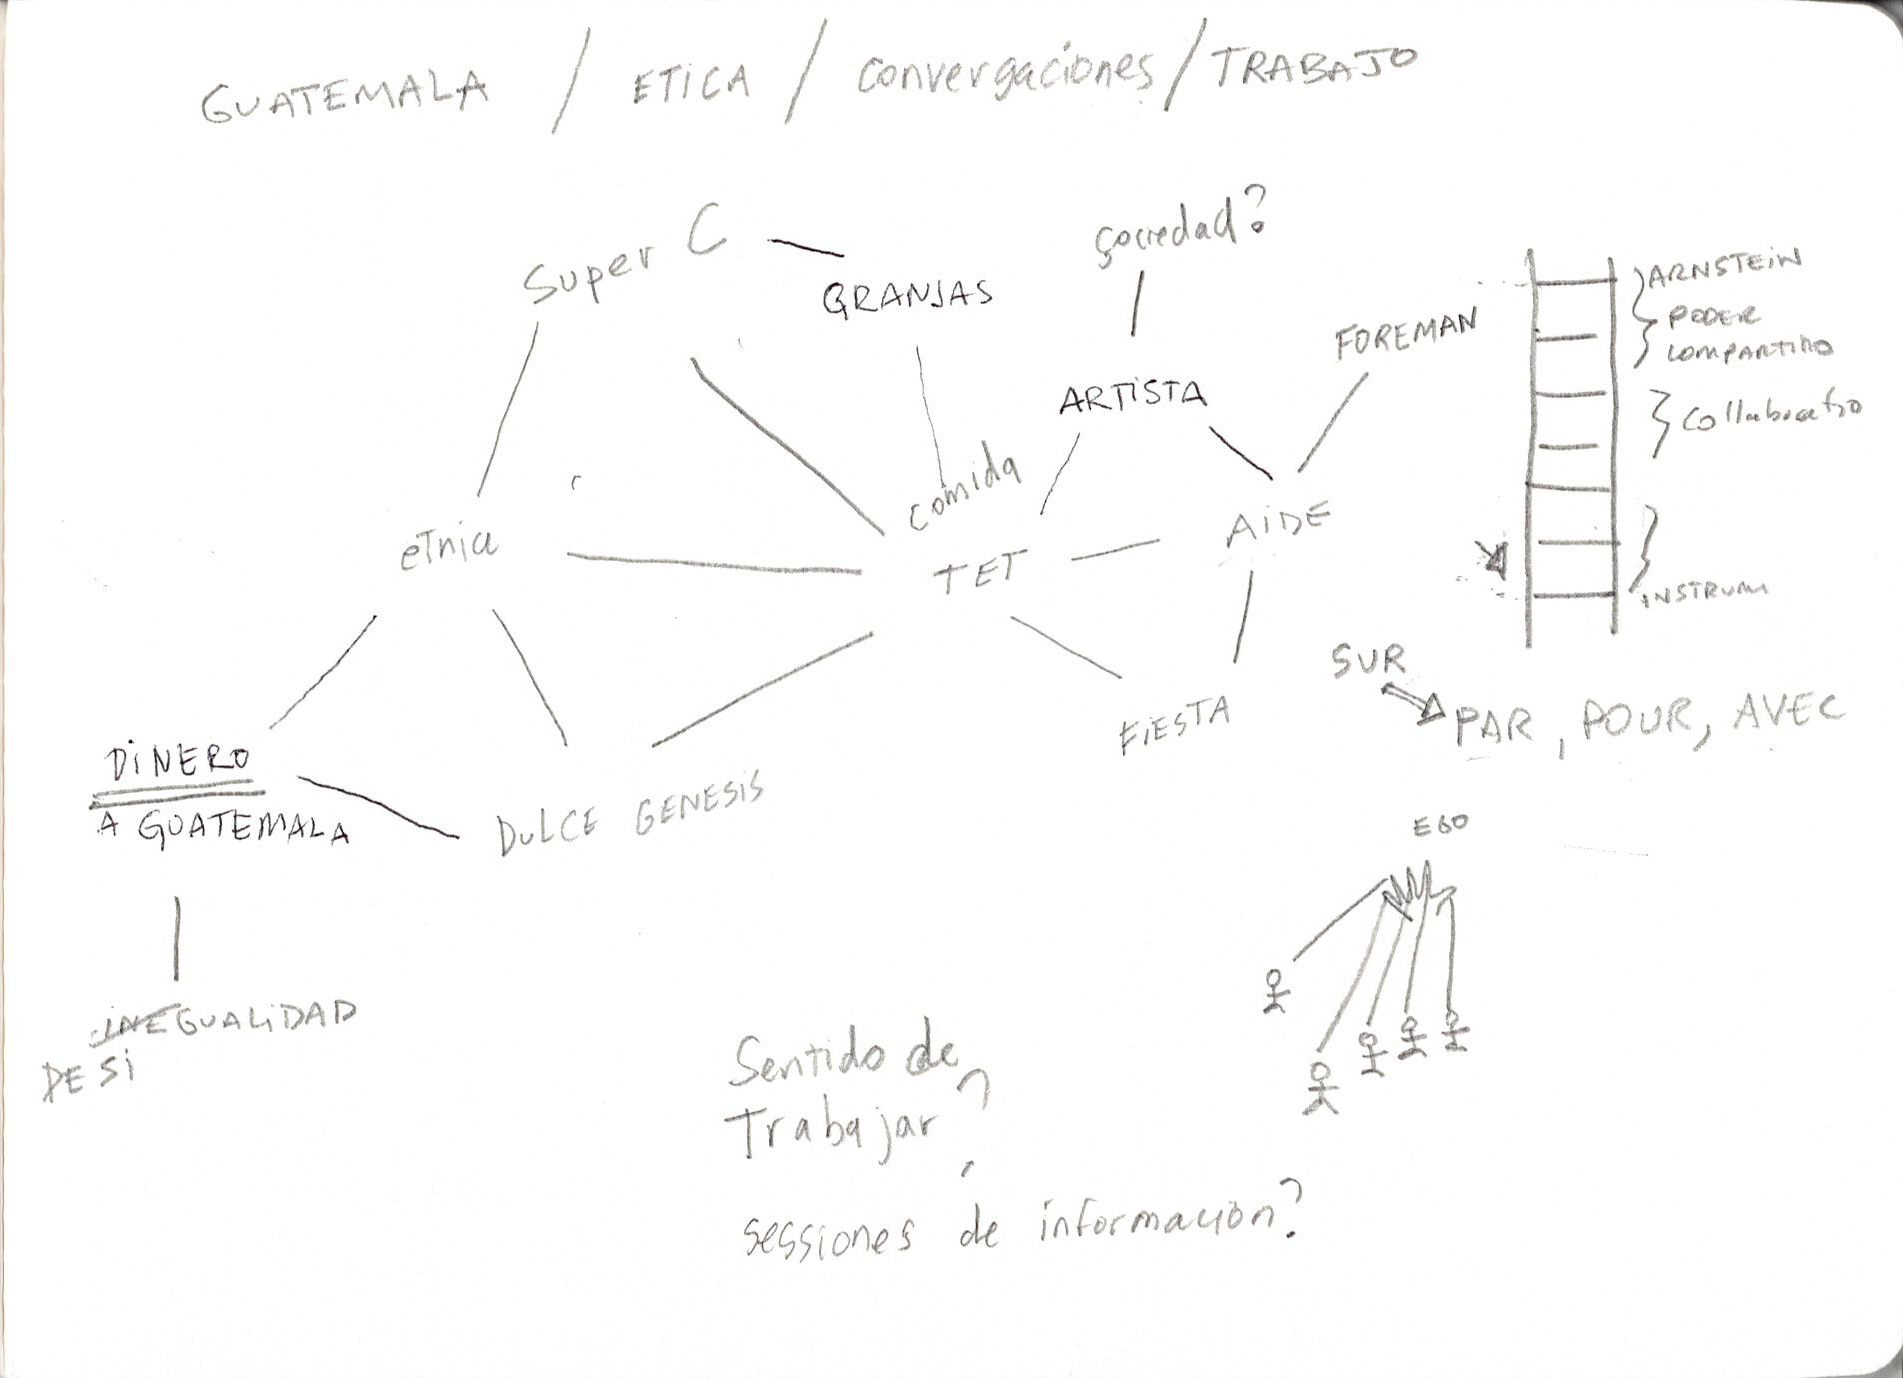 GUATEMALA / ETICA / Convergaciones / TRABAJO
Super C
GRANJAS
sociedad?
ARNSTEIN
PODER
COMPARTIDO
FOREMAN
ARTISTA
comida
etnia
TET
AIDE
INSTRUM
SUR
PAR, POUR, AVEC
FIESTA
DINERO
A GUATEMALA
DULCE GENESIS
EGO
INEGUALIDAD
DESI
Sentido de
Trabajar?
sessiones de información?